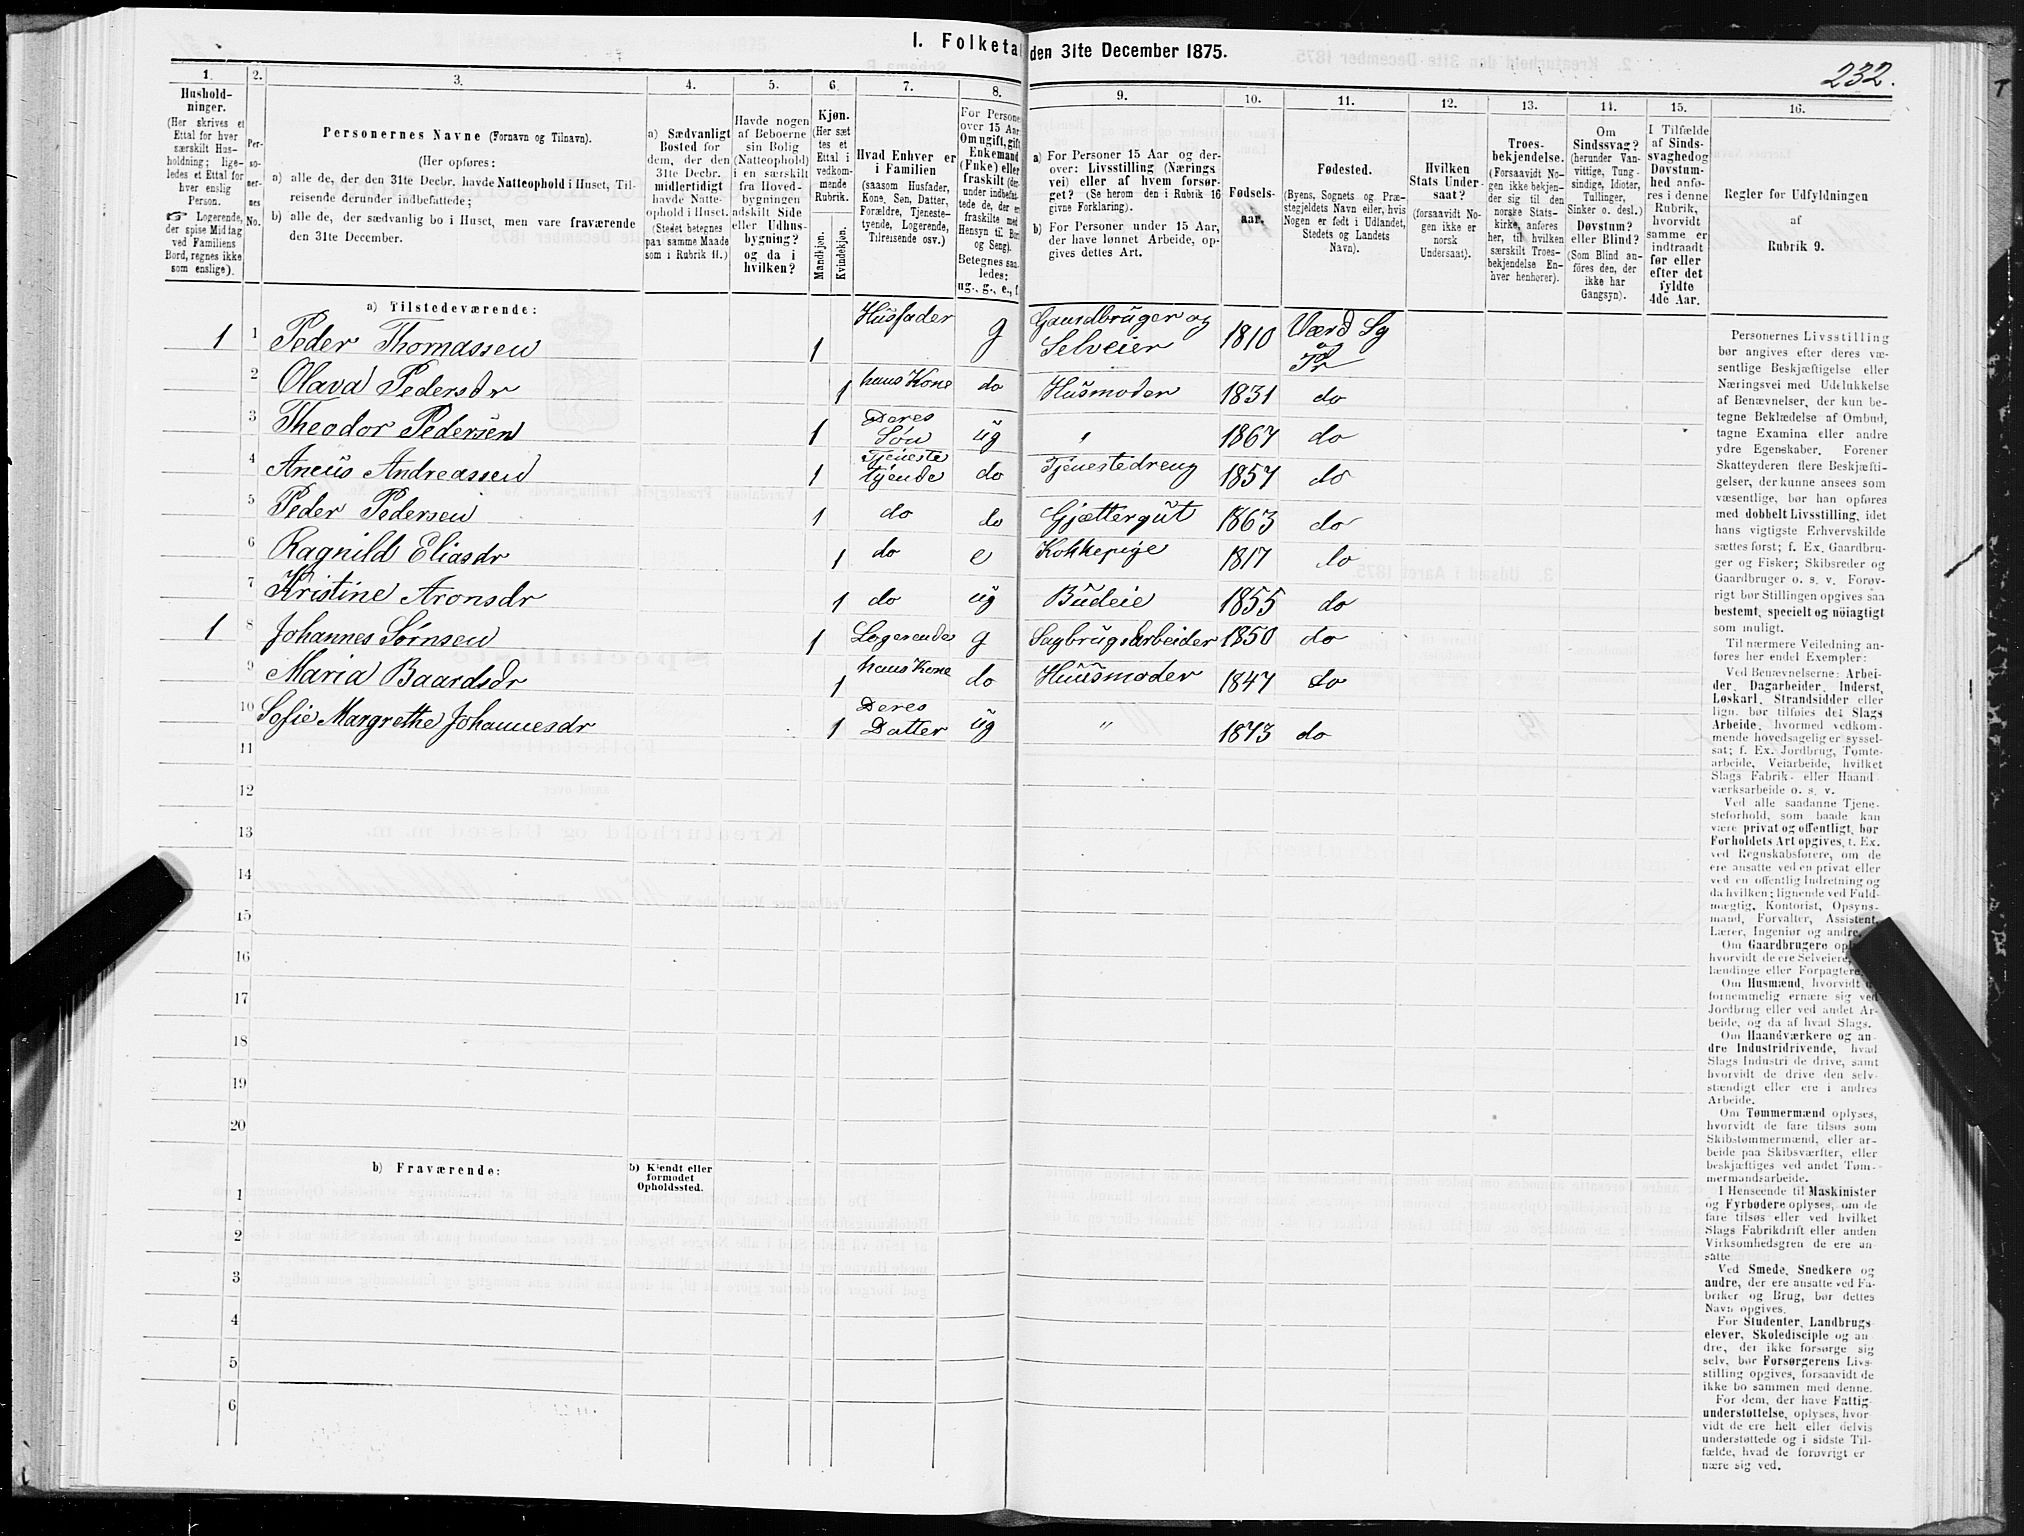 I. Folketal den 31te December 1875.
232.
1.
Hushold-
ninger.
(Her skrives et
Ettal for hver
særskilt Hus-
holdning; lige-
ledes et Ettal for
hver enslig
Person.
☞ Logerende,
der spise Midtag
ved Familiens
Bord, regnes ikke
som enslige).
2.
Per-
so-
ner-
nes
No.
3.
Personernes Navne (Fornavn og Tilnavn).
(Her opføres:
a) alle de, der den 31te Decbr. havde Natteophold i Huset, Til-
reisende derunder indbefattede;
b) alle de, der sædvanlig bo i Huset, men vare fraværende
den 31te December.
4.
a) Sædvanligt
Bosted for
dem, der den
31te Decbr.
midlertidigt
havde Natte-
ophold i Huset.
(Stedet betegnes
paa samme Maade
som i Rubrik 11.)
5.
Havde nogen
af Beboerne
sin Bolig
(Natteophold)
i en særskilt
fra Hoved-
bygningen
adskilt Side
eller Udhus-
bygning?
og da i
hvilken?
6.
Kjøn.
(Her sæt
tes et
Ettal i
vedkom-
mende
Rubrik.
Mandkjøn.
Kvindekjøn.
7.
Hvad Enhver er
i Familien
(saasom Husfader,
Kone, Søn, Datter,
Forældre, Tjeneste-
tyende, Logerende,
Tilreisende osv.)
8.
For Personer
over 15 Aar
Om ugift, gift
Enkemand
(Enke) eller
fraskilt (der-
under indbefat-
tede de, der er
fraskilte med
Hensyn til Bord
og Seng).
Betegnes saa-
ledes:
ug., g., e., f.
9.
a) For Personer 15 Aar og der-
over: Livsstilling (Nærings
vei) eller af hvem forsør-
get? (Se herom den i Rubrik 16
givne Forklaring).
b) For Personer under 15 Aar,
der have lønnet Arbeide, op-
gives dettes Art.
10.
Fødsels-
aar.
11.
Fødested.
(Byens, Sognets og Præ-
stegjeldets Navn eller, hvis
Nogen er født i Udlandet,
Stedets og Landets
Navn).
12.
Hvilken
Stats Under-
saat?
(forsaavidt No-
gen ikke er
norsk
Undersaat).
13.
Troes-
bekjendelse.
(Forsaavidt No-
gen ikke bekjen-
der sig til den
norske Stats-
kirke, anføres
her, til hvilken
særskilt Troes-
bekjendelse En-
hver henhører).
14.
Om
Sindssvag?
(herunder Van-
vittige, Tung-
sindige, Idioter,
Tullinger,
Sinker o. desl.)
Døvstum?
eller Blind?
(Som Blind an-
føres den, der
ikke har
Gangsyn).
15.
I Tilfælde
af Sinds-
svaghed og
Døvstum-
hed anfø-
res i denne
Rubrik,
hvorvidt
samme er
indtraadt
før eller
efter det
fyldte
4de Aar.
16.
Regler for Udfyldningen
af
Rubrik 9.
a) Tilstedeværende:
1 1 Peder Thomassen 1 Husfader g Gaardbruger og Selveier 1810 Værd Sg og Pr
2 Olava Pedersdr 1 hans Kone do Husmoder 1831 do
3 Theodor Pedersen 1 Deres Søn ug " 1867 do
4 Aneus Andreassen 1 Tjeneste tyende do Tjenestedreng 1857 do
5 Peder Pedersen 1 do do Gjættergut 1863 do
6 Ragnild Eliasdr 1 do e Kokkepige 1817 do
7 Kristine Aronsdr 1 do ug Budeie 1855 do
1 8 Johannes Sørnsen 1 Logerende g Sagbrugsarbeider 1850 do
9 Maria Baardsdr 1 hans Kone do Huusmoder 1847 do
10 Sofie Margrethe Johannesdr 1 Deres Datter ug " 1873 do
11
12
13
14
15
16
17
18
19
20
b) Fraværende:
b) Kjendt eller
formodet
Opholdssted.
1
2
3
4
5
6
Personernes Livsstilling
bør angives efter deres væ-
sentlige Beskjæftigelse eller
Næringsvei med Udelukkelse
af Benævnelser, der kun be-
tegne Beklædelse af Ombud,
tagne Examina eller andre
ydre Egenskaber. Forener
Skatteyderen flere Beskjæfti-
gelser, der kunne ansees som
væsentlige, bør han opføres
med dobbelt Livsstilling, idet
hans vigtigste Erhvervskilde
sættes først; f. Ex. Gaardbru-
ger og Fisker; Skibsreder og
Gaardbruger o. s. v. Forøv-
rigt bør Stillingen opgives saa
bestemt, specielt og nöiagtigt
som muligt.
Til nærmere Veiledning an-
føres her endel Exempler:
Ved Benævnelserne: Arbei-
der, Dagarbeider, Inderst,
Løskarl, Strandsidder eller
lign. bør tilføies det Slags
Arbeide, hvormed vedkom-
mende hovedsagelig er syssel-
sat; f. Ex. Jordbrug, Tomte-
arbeide, Veiarbeide, hvilket
Slags Fabrik- eller Haand-
værksarbeide o. s. v.
Ved alle saadanne Tjene-
steforhold, som baade kan
være privat og offentligt, bør
Forholdets Art opgives, t. Ex.
ved Regnskabsførere, om de
ere ansatte ved en privat eller
ved en offentlig Indretning og
da hvilken; lignende ved Fuld-
mægtig, Kontorist, Opsyns-
mand, Forvalter, Assistent,
Lærer, Ingeniør og andre.
Om Gaardbrugere
hvorvidt de ere Selveiere,
lændinge eller Forpagtere.
Om Husmænd, hvorvidt
fornemmelig ernære sig ved
Jordbrug eller ved andet Ar-
beide, og da af hvad Slags.
Om Haandværkere og an-
dre Industridrivende, hvad
Slags Industri de drive, samt
hvorvidt de drive den selv-
stændigt eller ere i andres
Arbeide.
Om Tømmermænd oplyses,
hvorvidt de fare tilsøs som
Skibstømmermænd, eller ar-
beide paa Skibsværfter, eller
beskjæftiges ved andet Tøm-
mermandsarbeide.
I Henseende til Maskinister
og Fyrbødere oplyses, om de
fare tilsøs eller ved hvilket
Slags Fabrikdrift eller anden
Virksomhedsgren de ere an-
satte.
Ved Smede, Snedkere og
andre, der ere ansatte ved Fa-
briker og Brug, bør dettes
Navn opgives.
For Studenter, Landbrugs-
elever, Skoledisciple og an-
dre, der ikke forsørge sig
selv, bør Forsørgerens Livs-
stilling opgives, forsaavidt de
ikke bo sammen med denne.
For dem, der have Fattig-
understøttelse, oplyses, hvor-
vidt de ere helt eller delvis
understøttede og i sidste Til-
fælde, hvad de forøvrigt er
nære sig ved.